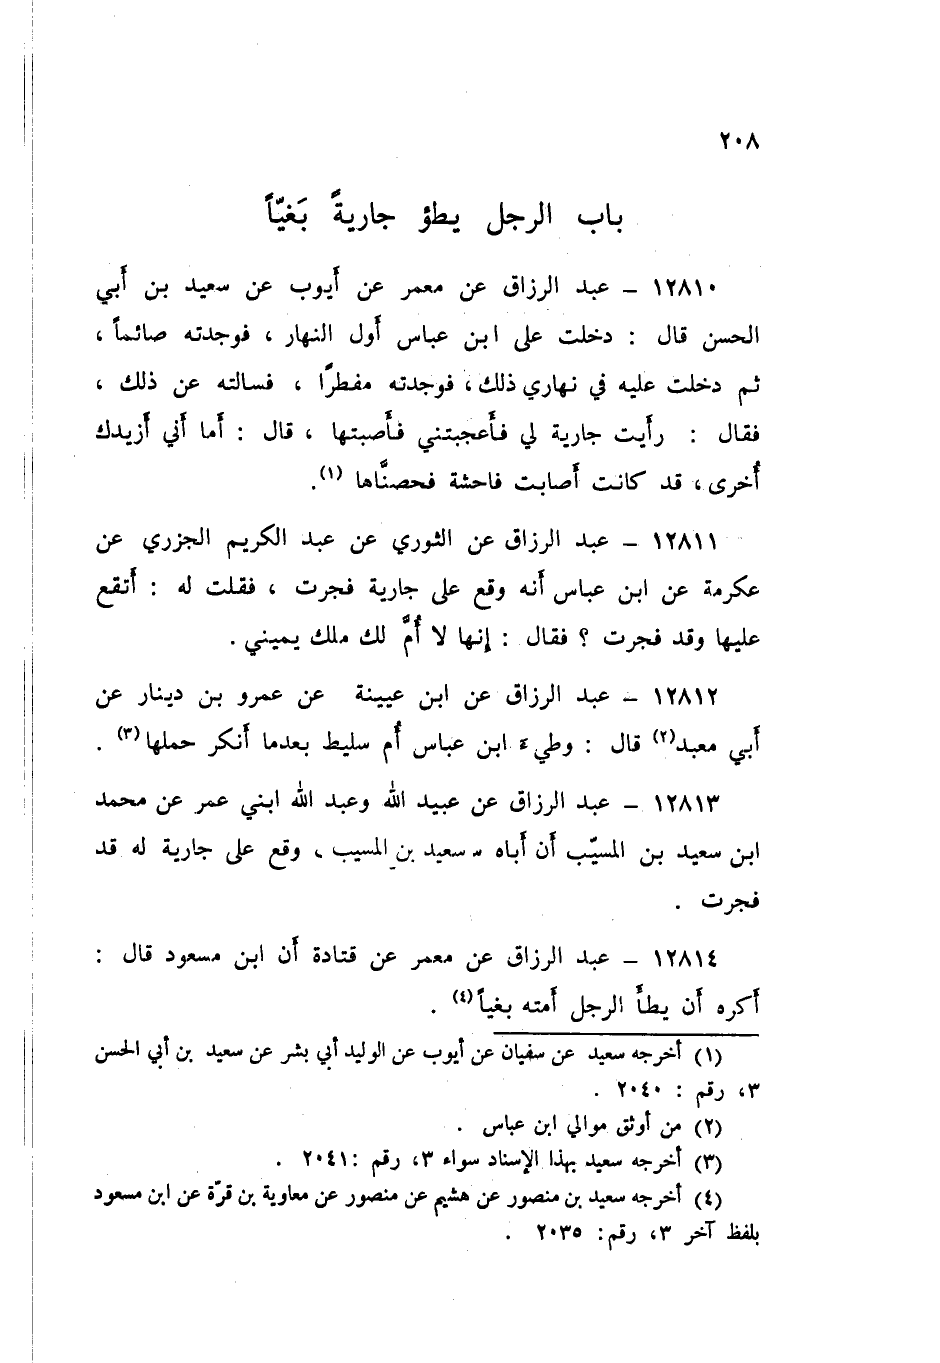 ٢٠٨
باب الرجل يطؤ جاريةً بَغيّاً
١٢٨١٠ – عبد الرزاق عن معمر عن أَيوب عن سعيد بن أَبي
الحسن قال : دخلت على ابن عباس أَول النهار ، فوجدته صائماً ،
ثم دخلت عليه في نهاري ذلك ، فوجدته مفطرًا ، فسالته عن ذلك ،
فقال : رأَيت جارية لي فأَعجبتني فأَصبتها ، قال : أَما أَني أَزيدك
أُخرى ، قد كانت أَصابت فاحشة فحصنَّاها (١).
١٢٨١١ – عبد الرزاق عن الثوري عن عبد الكريم الجزري عن
عكرمة عن ابن عباس أَنه وقع على جارية فجرت ، فقلت له : أَتقع
عليها وقد فجرت ؟ فقال : إِنها لا أُمَّ لك ملك يميني .
١٢٨١٢ – عبد الرزاق عن ابن عيينة عن عمرو بن دينار عن
أَبي معبد(٢) قال : وطيء ابن عباس أُم سليط بعدما أَنكر حملها(٣) .
١٢٨١٣ – عبد الرزاق عن عبيد الله وعبد الله ابني عمر عن محمد
ابن سعيد بن المسيّب أَن أَباه « سعيد بن المسيب » وقع على جارية له قد
فجرت .
١٢٨١٤ – عبد الرزاق عن معمر عن قتادة أَن ابن مسعود قال :
أَكره أَن يطأَ الرجل أَمته بغياً(٤) .
(١) أخرجه سعيد عن سفيان عن أيوب عن الوليد أبي بشر عن سعيد بن أبي الحسن
٣، رقم : ٢٠٤٠ .
(٢) من أوثق موالي ابن عباس .
(٣) أخرجه سعيد بهذا الإسناد سواء ٣، رقم :٢٠٤١ .
(٤) أخرجه سعيد بن منصور عن هشيم عن منصور عن معاوية بن قرّة عن ابن مسعود
بلفظ آخر ٣، رقم: ٢٠٣٥ .